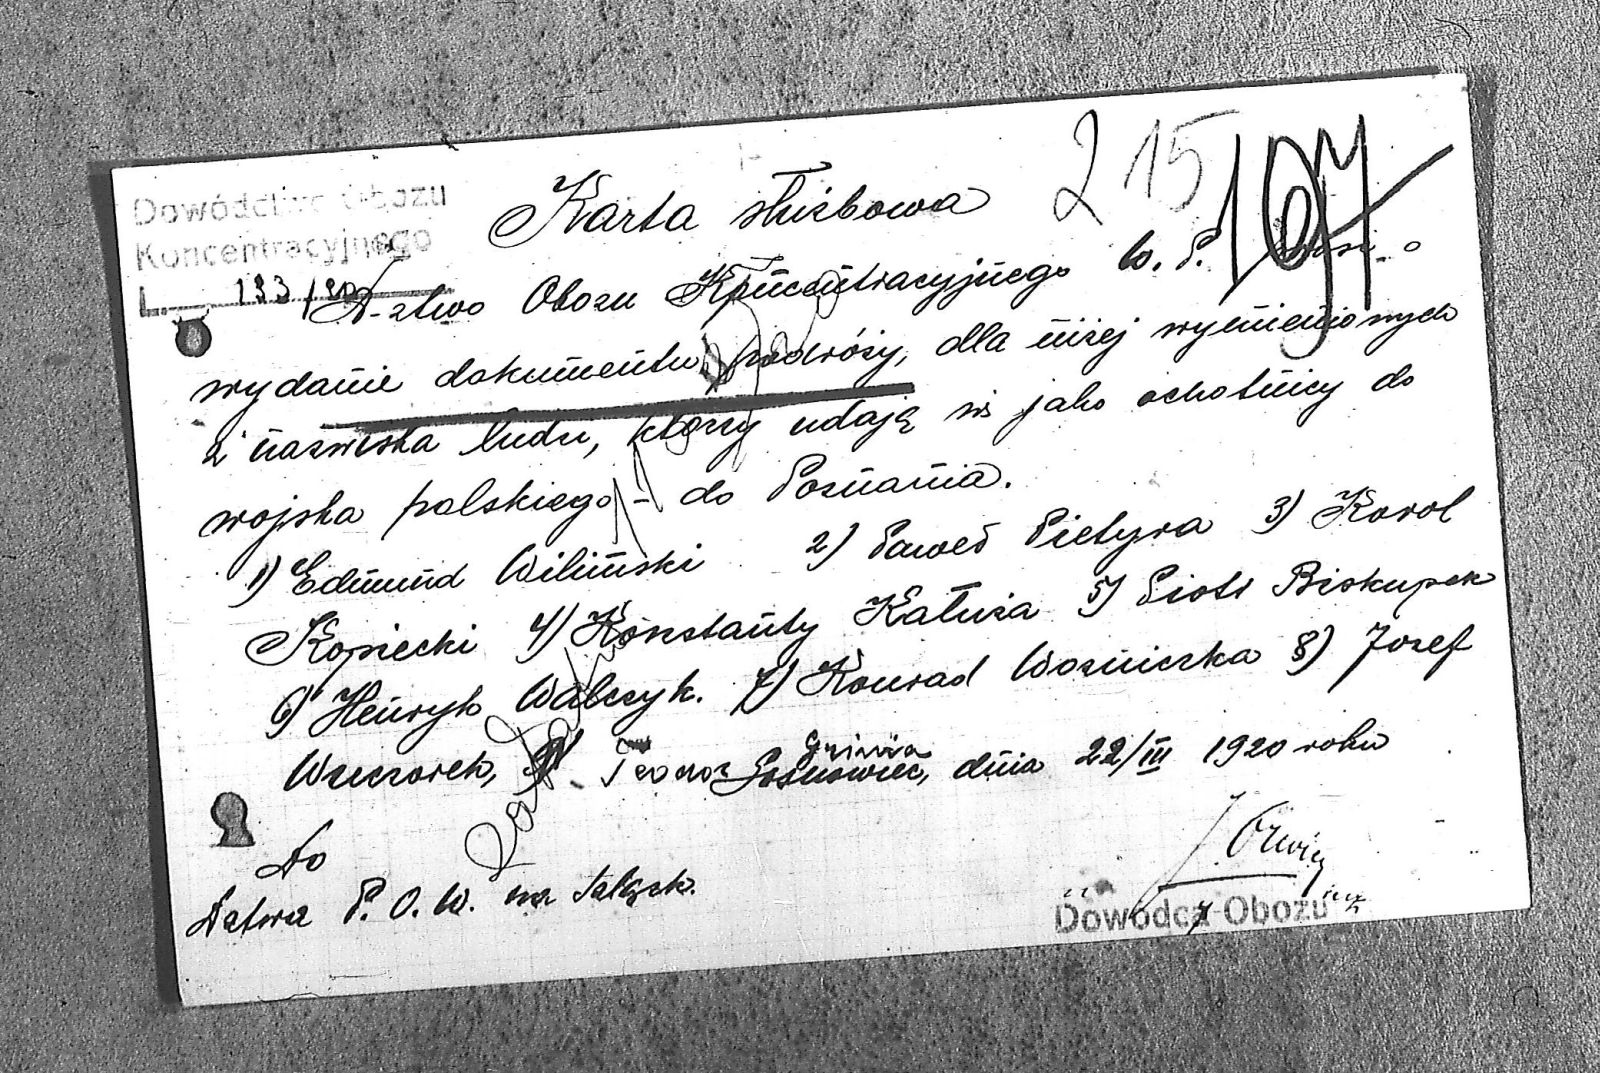 215
197
Dowództwo Obozu
Koncentracyjnego
L 133/20
Karta służbowa
D-ztwo Obozu Koncentracyjnego W. P. prosi o
wydanie dokumentu podróży, dla niżej wymienionych
z nazwiska ludzi, którzy udają się jako ochotnicy do
wojska polskiego – do Poznania.
1) Edmund Wiliński 2) Paweł Pietyra 3) Karol
Kopiecki 4) Konstanty Kałuża 5) Piotr Biskupek
6) Henryk Walczyk. 7) Konrad Woźniczka 8) Józef
Wieczorek, 9. Teodor Gniwia
Sosnowiec, dnia 22/III 1920 roku
Do
Dztwa P. O. W. na Śląsk.
Dowódca Obozu